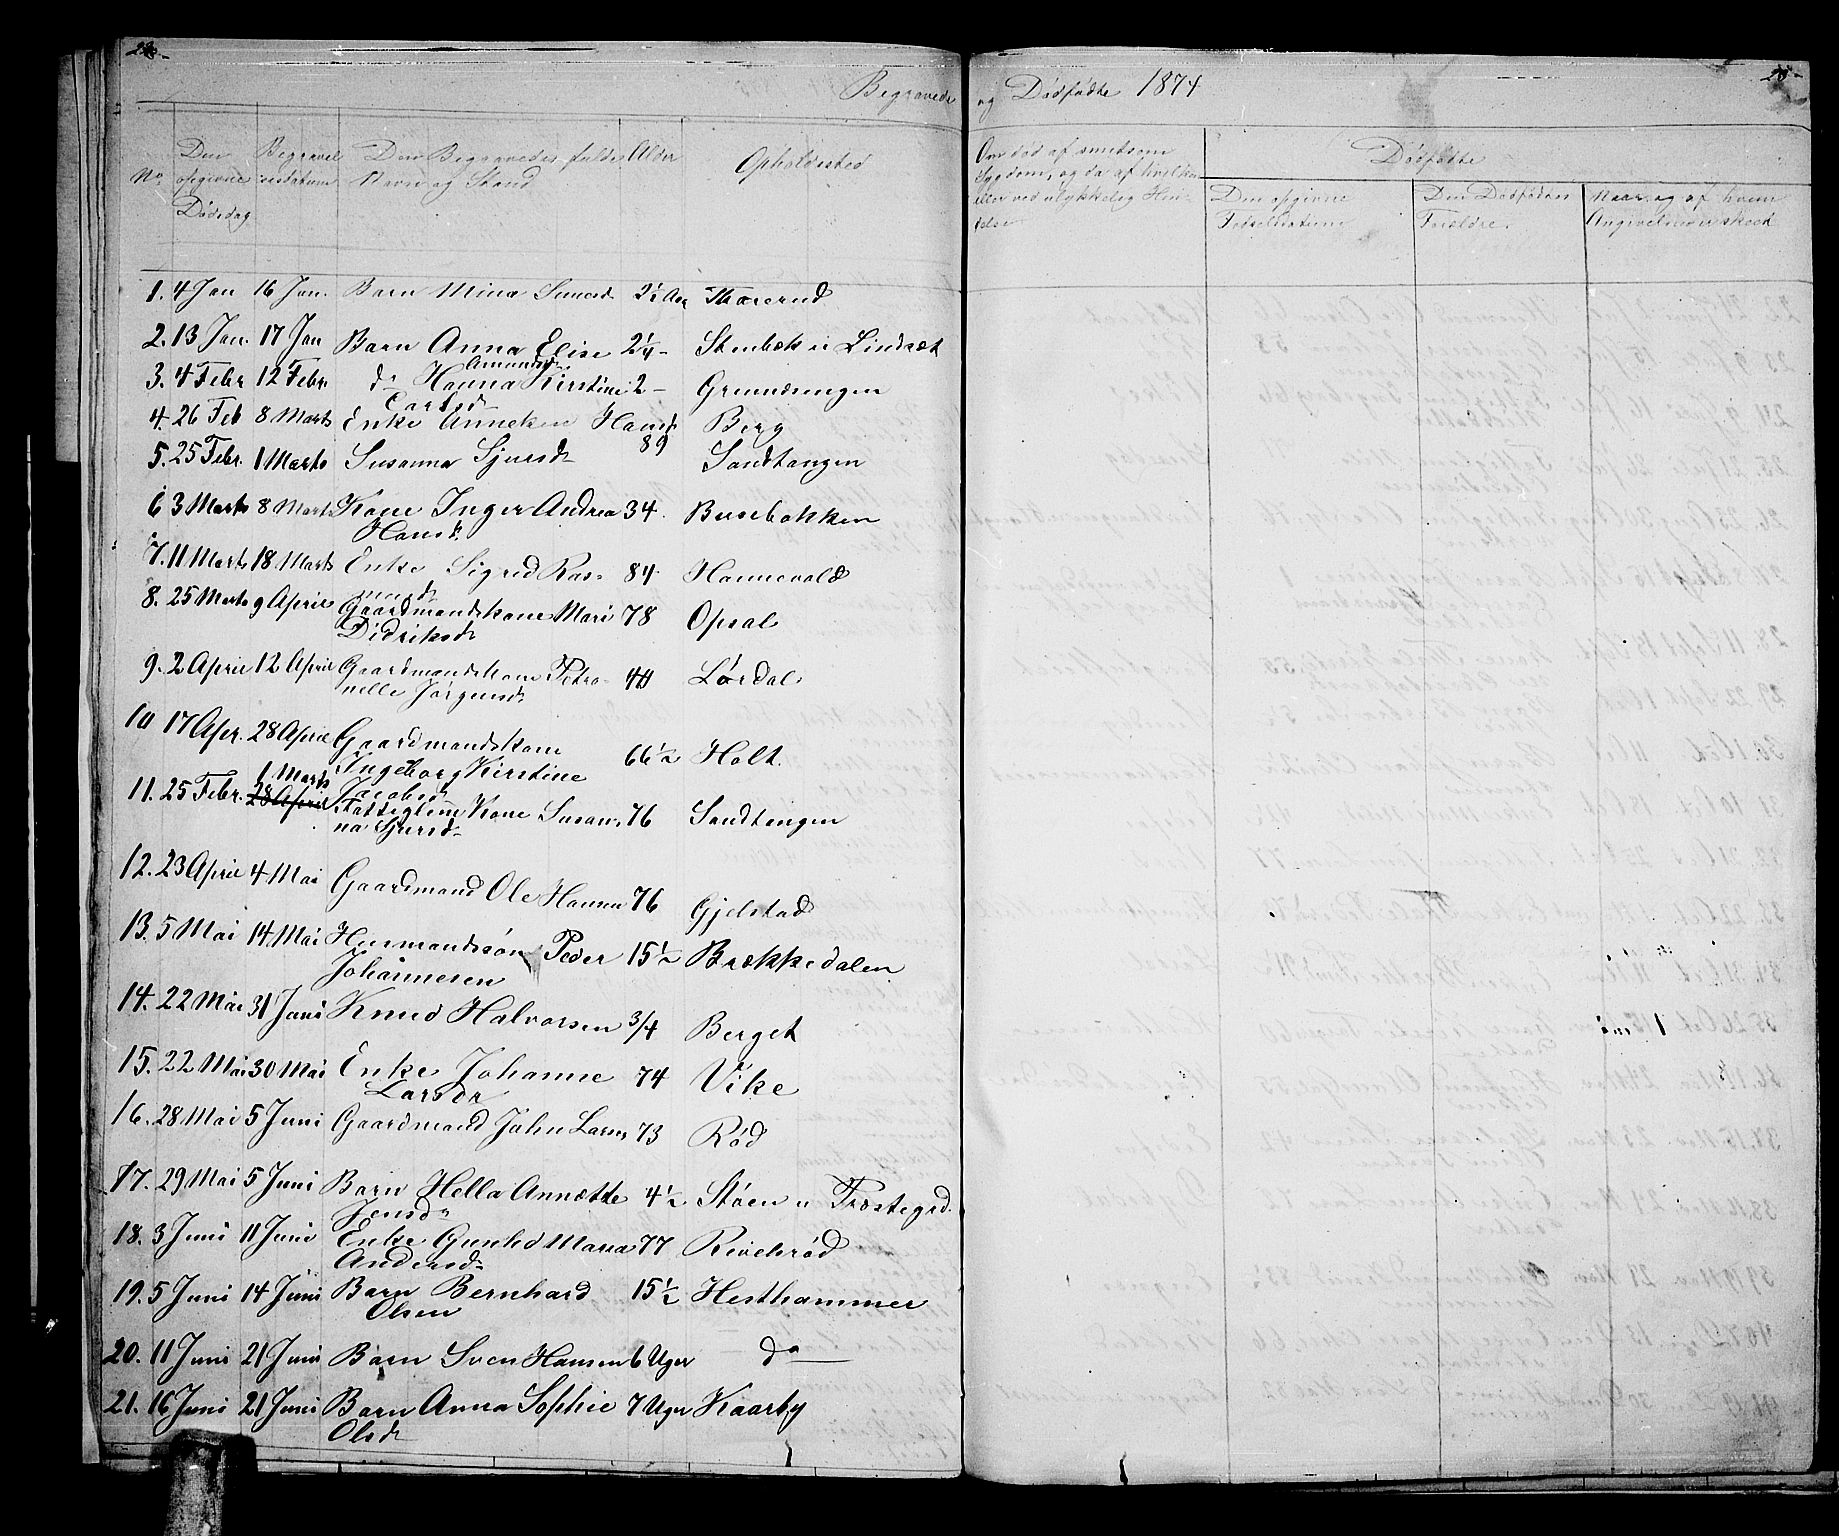 28.
28.
Begravede og Dødfødte 1874
No.
Den opgivne Dødsdag
Begravelsesdatum
Den Begravedes fulde Navn og Stand
Alder
Opholdssted
Om død af smitsom Sygdom, og da af hvilken eller ved ulykkelig Hændelse
Dødfødte
Den opgivne Fødselsdatum
Den Dødfødtes Forældre.
Naar og af hvem Angivelsen er skeet
1. 4 Jan 16 Jan. Barn Mina 2½ Aar
2. 13 Jan. 17 Jan Barn Anna Elise 2¼ - Stenbek u Lindsæt
Amundsd
3. 4 Febr 12 Febr. do Hanna Kirstine 2 - Grumsengen
Carlsd
4. 26 Feb 8 Marts Enke Anneken Hansd Berg
89
5. 25 Febr. 1 Marts Susanna Sjursdr Sandtangen
6 3 Marts 8 Marts Kone Inger Andrea 34. Busebakken
Hansd.
7. 11 Marts 18 Marts Enke Sigred Ras- 84 Hannevold
musd
8. 25 Marts 9 April Gaardmandskone Mari 78 Opsal
Didriksdr
9. 2 April 12 April Gaardmandskone Petro- 44 Lørdal
nelle Jørgensdr
10 17 Apr. 28 April Gaardmandskone
Ingeborg Kirstine 66½ Holt.
Jacobsd
1 Marts
11. 25 Febr. 28 April Fattiglem Kone Susan- 76 Sandtangen
na Sjursdr
12. 23 April 4 Mai Gaardmand Ole Hansen 76 Gjelstad
13. 5 Mai 14 Mai Husmandssøn Peder 15½ Brækkedalen
Johannesen
14. 22 Mai 31 Juni Knud Halvorsen 3/4 Berget
15. 22 Mai 30 Mai Enke Johanne 74 Vike
Larsdr
16. 28 Mai 5 Juni Gaardmand John Larsn 73 Rød
17. 29 Mai 5 Juni Barn Hella Annætte 4½ Støen u Præstegrd.
Jensdr
18. 3 Juni 11 Juni Enke Gunhild Maria 77
Andersdr
19. 5 Juni 14 Juni Barn Bernhard 15½ Hesthammer
Olsen
20. 11 Juni 21 Juni Barn Sven Hansen 6 Uger do
21. 16 Juni 21 Juni Barn Anna Sophie 7 Uger Kaarby
Olsdr